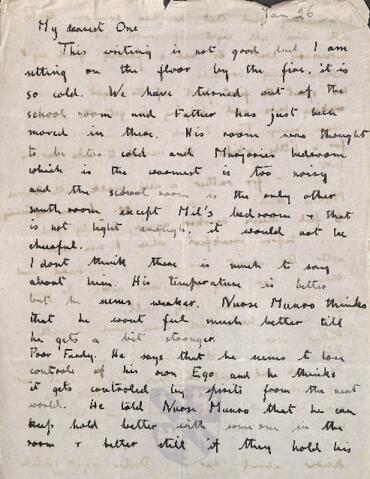 Jan 26
My dearest One
This writing is not good but I am
sitting on the floor by the fire, it is
so cold. We have turned out of the
school room and Father has just been
moved in there. His room was thought
to be too cold and Marjories bedroom
which is the warmest is too noisy
and the school room is the only other
south room except Mil's bedroom & that
is not light enough, it would not be
cheerful.
I dont think there is much to say
about him. His temperature is better
but he seems weaker. Nurse Munro thinks
that he wont feel much better till
he gets a bit stronger.
Poor He says that he seems to lose
controle of his own Ego and he thinks
it gets controled by spirits from the next
world. He told Nurse Munro that he can
keep hold better with some one in the
room & better still if they hold his